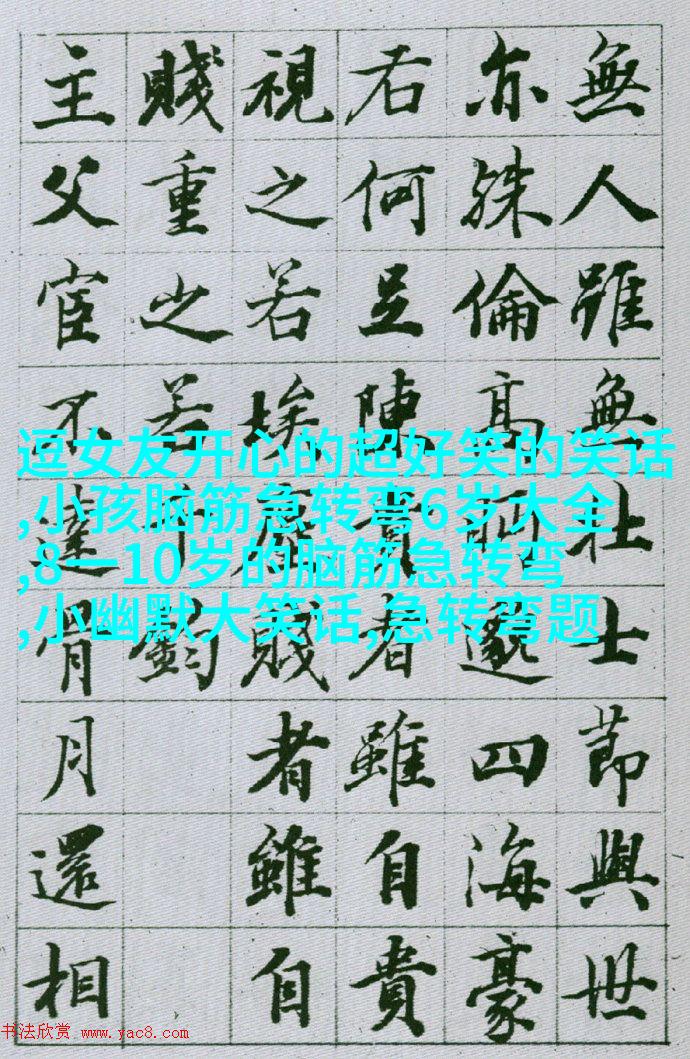 無人雖無壯士節與世
亦殊倫高眄邈四海豪
右何足陳貴者雖自貴
視之若埃塵賤者雖自
賤重之若千鈞
主父宦不達骨月還相
逗女友开心的超好笑的笑话
,小孩脑筋急转弯6岁大全
,8一10岁的脑筋急转弯
,小幽默大笑话,急转弯题
书法欣赏 www.yac8.com